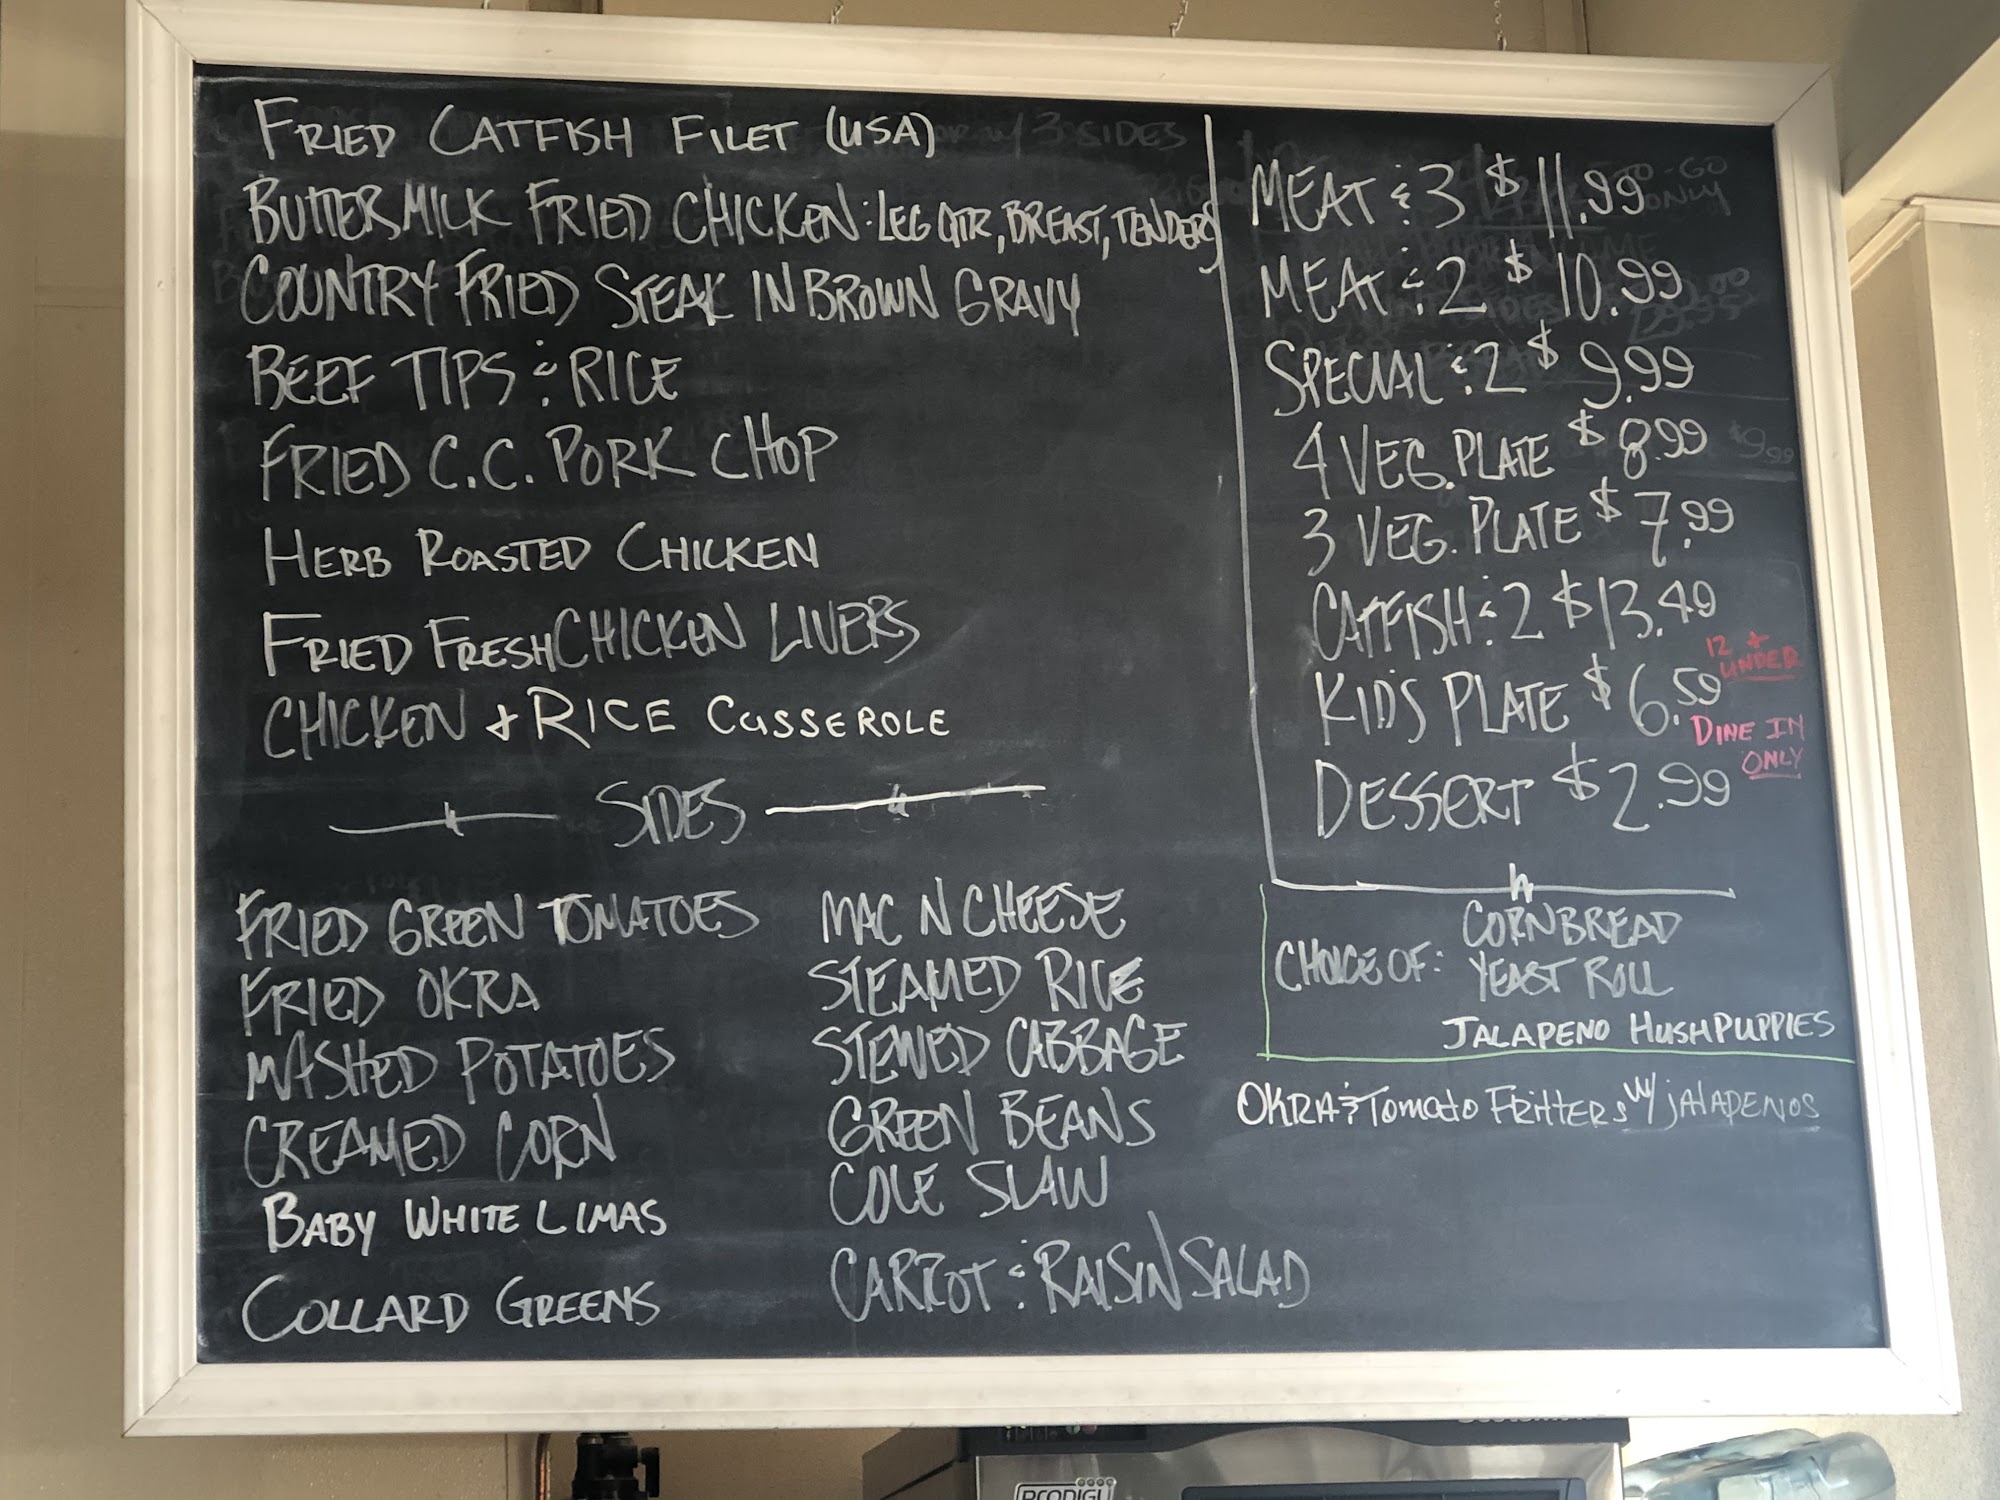 FRIED CATFISH FILET (USA)
BUTTERMILK FRIED CHICKEN: LEG QTR, BREAST, TENDERS
COUNTRY FRIED STEAK IN BROWN GRAVY
BEEF TIPS & RICE
FRIED C.C. PORK CHOP
HERB ROASTED CHICKEN
FRIED FRESH CHICKEN LIVERS
CHICKEN + RICE CASSEROLE
SIDES
FRIED GREEN TOMATOES
FRIED OKRA
MASHED POTATOES
CREAMED CORN
BABY WHITE LIMAS
COLLARD GREENS
MAC N CHEESE
STEAMED RICE
STEWED CABBAGE
GREEN BEANS
COLE SLAW
CARROT & RAISIN SALAD
MEAT & 3 $11.99
MEAT & 2 $10.99
SPECIAL & 2 $9.99
4 VEG. PLATE $8.99
3 VEG. PLATE $7.99
CATFISH & 2 $13.49
12 + UNDER
KID'S PLATE $6.59
DINE IN ONLY
DESSERT $2.99
CHOICE OF: CORNBREAD
YEAST ROLL
JALAPENO HUSHPUPPIES
OKRA & TOMATO FRITTERS W/ JALAPENOS
PRODIGY